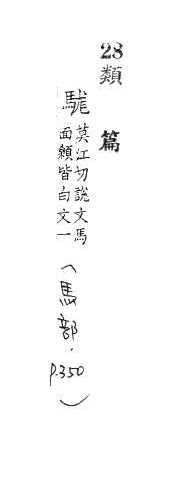 28
類篇
駹
莫江切說文馬
面顙皆白文一
(馬部.p.350)